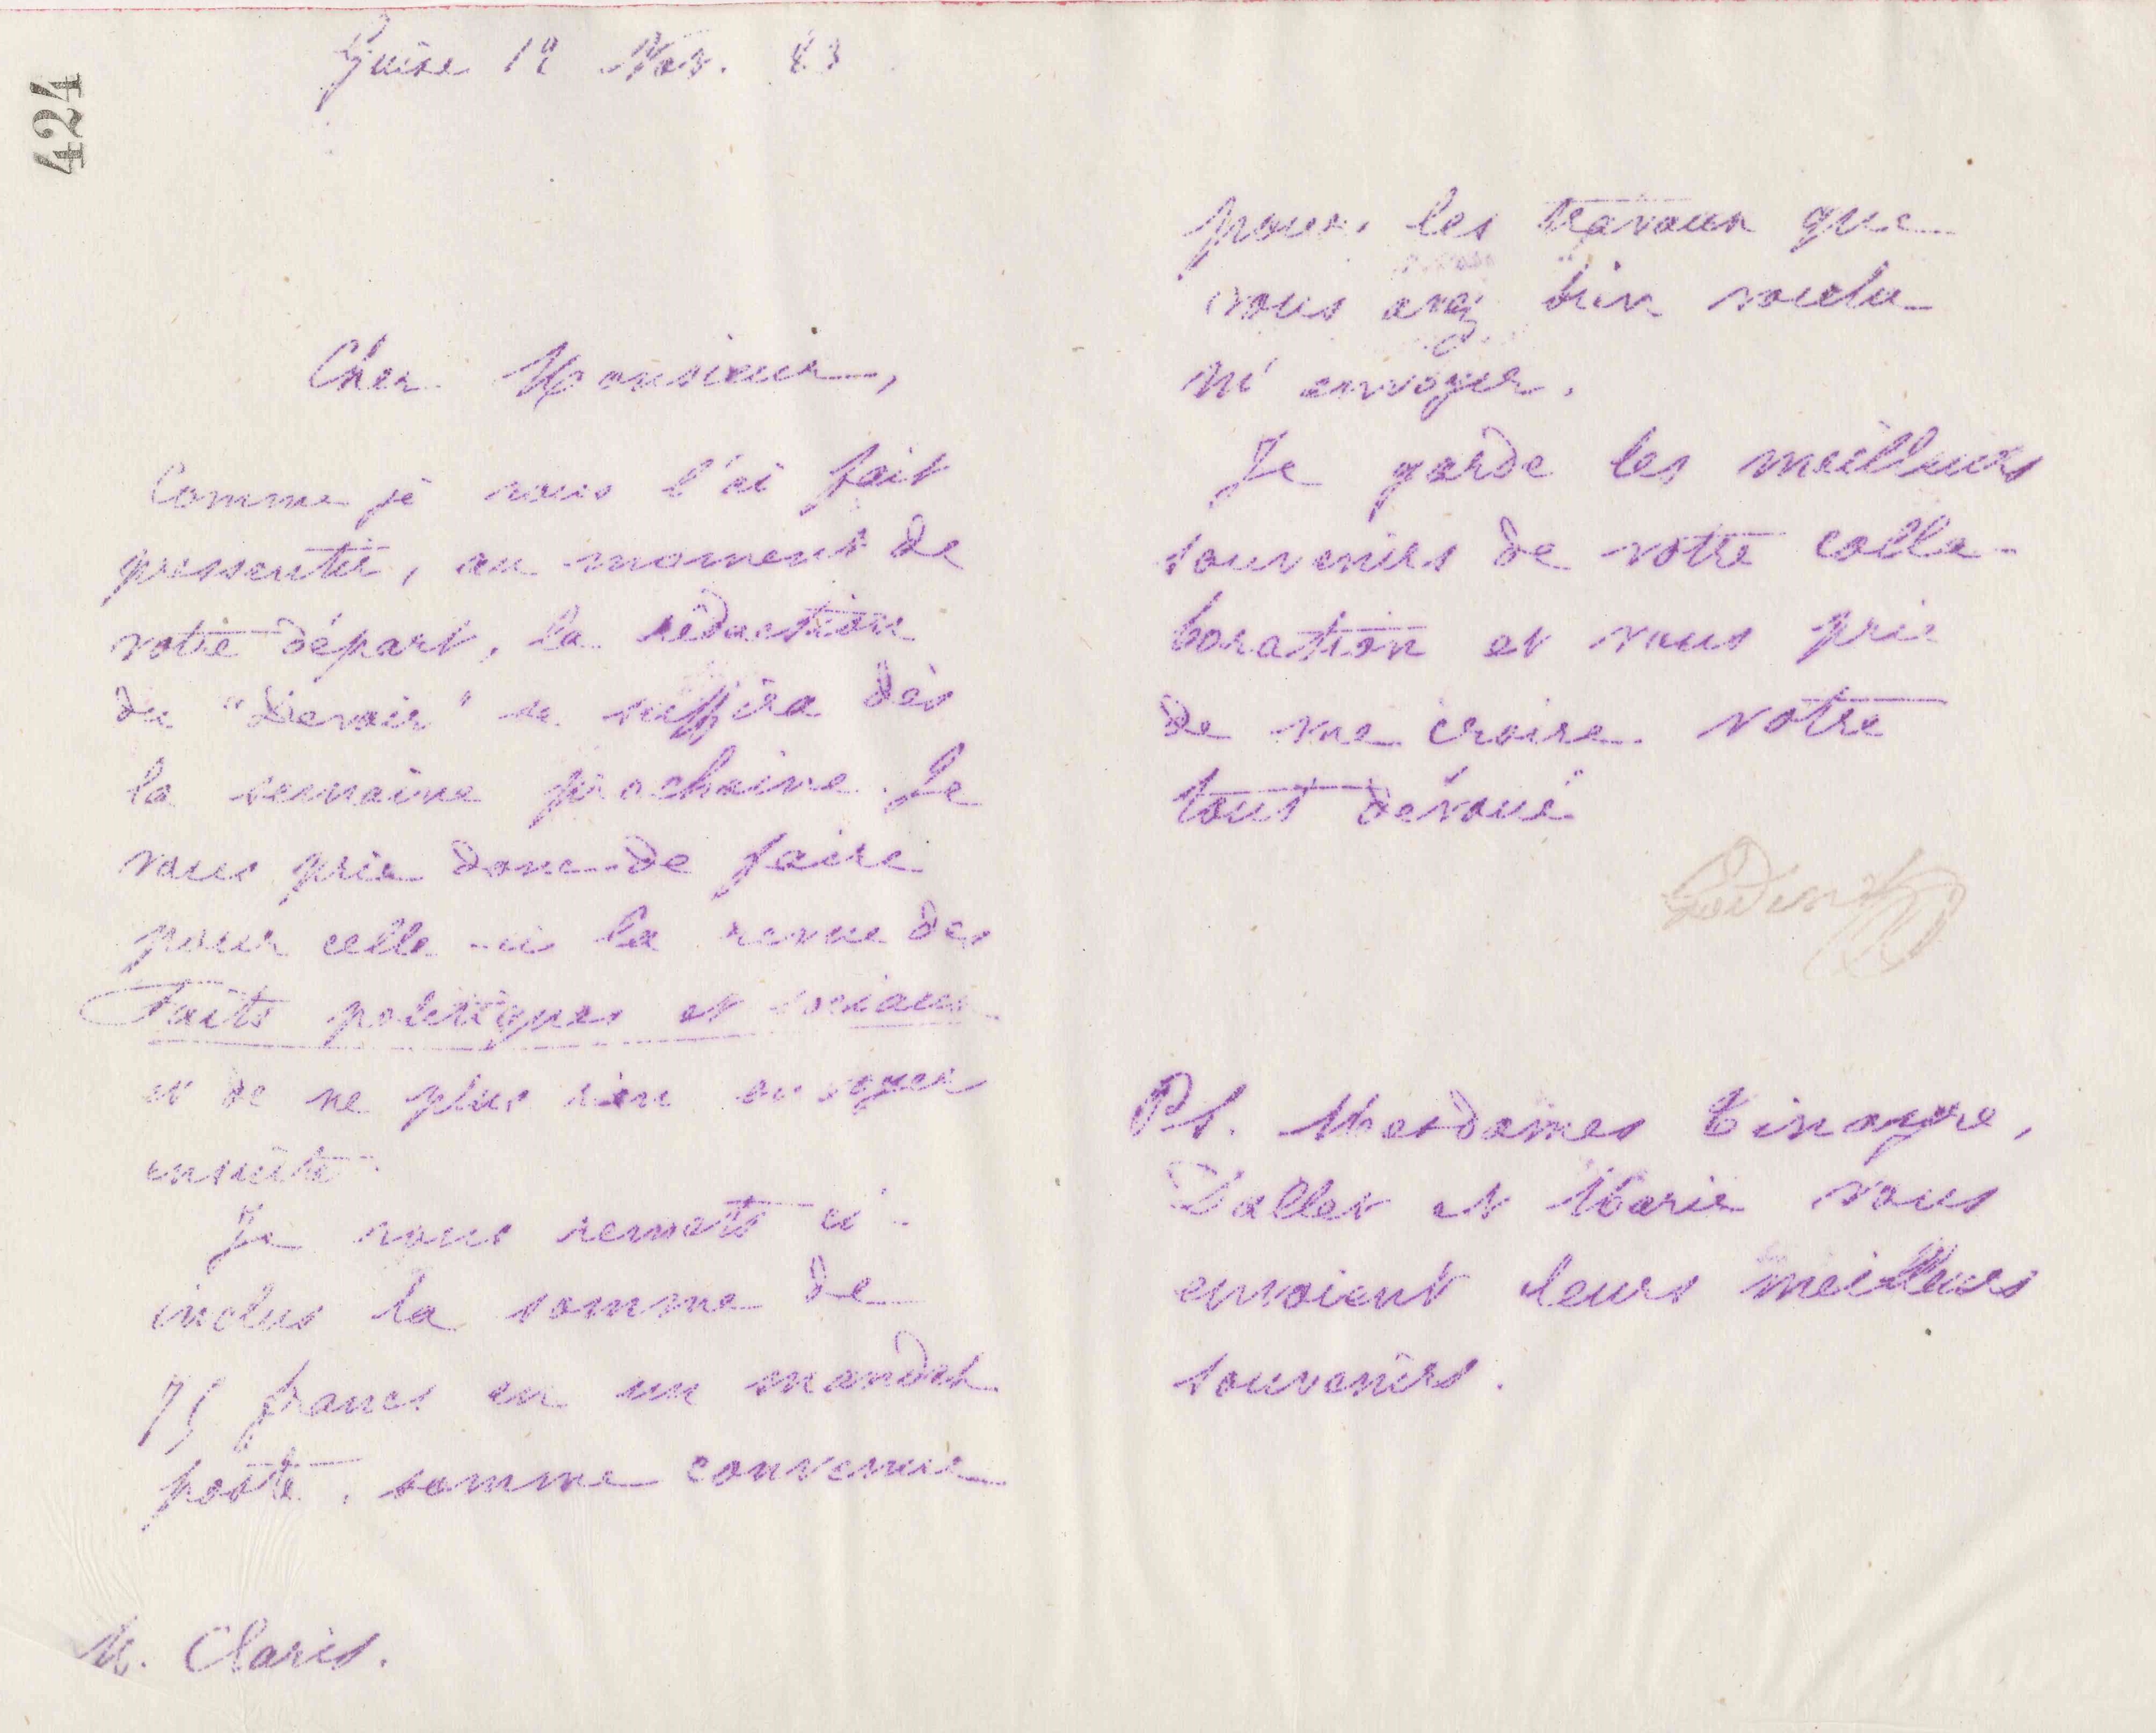 424
Guise 12 Nov. 83
Cher Monsieur,
Comme je vous l'ai fait
pressentir, au moment de
votre départ, la rédaction
du "Devoir" se suffira dès
la semaine prochaine. Je
vous prie donc de faire
pour celle-ci la revue des
Faits politiques et sociaux
et de ne plus rien envoyer
ensuite.
Je vous remets ci-
inclus la somme de
75 francs en un mandat
poste, somme convenue
M. Claris.
pour les travaux que
vous avez bien voulu
m'envoyer.
Je garde les meilleurs
souvenirs de votre colla-
boration et vous prie
de me croire votre
tout dévoué
Godin
PS. Mesdames Tinayre,
Dallet et Marie vous
envoient leurs meilleurs
souvenirs.